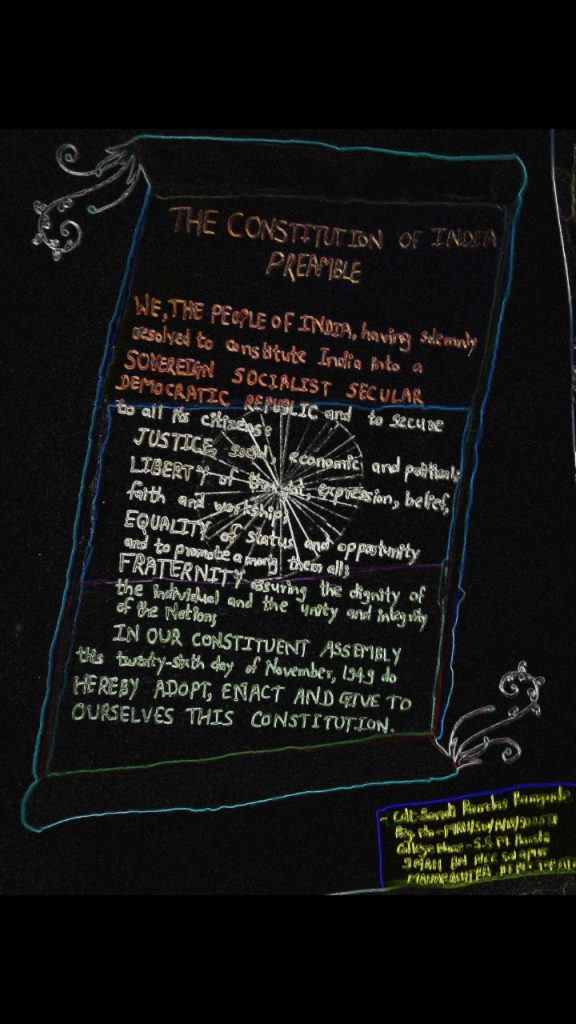 THE CONSTITUTION OF INDIA
PREAMBLE
WE, THE PEOPLE OF INDIA, having solemnly
resolved to constitute India into a
SOVEREIGN SOCIALIST SECULAR
DEMOCRATIC REPUBLIC and to secure
to all its citizens:
JUSTICE, social, economic and political;
LIBERTY of thought, expression, belief,
faith and workship;
EQUALITY of status and opportunity
and to promote among them all;
FRATERNITY assuring the dignity of
the individual and the unity and integrity
of the Nation;
IN OUR CONSTITUENT ASSEMBLY
this twenty-sixth day of November, 1949 do
HEREBY ADOPT, ENACT AND GIVE TO
OURSELVES THIS CONSTITUTION.
- Cdt-
Reg. No -
College Name - S.S.M
BN NCC